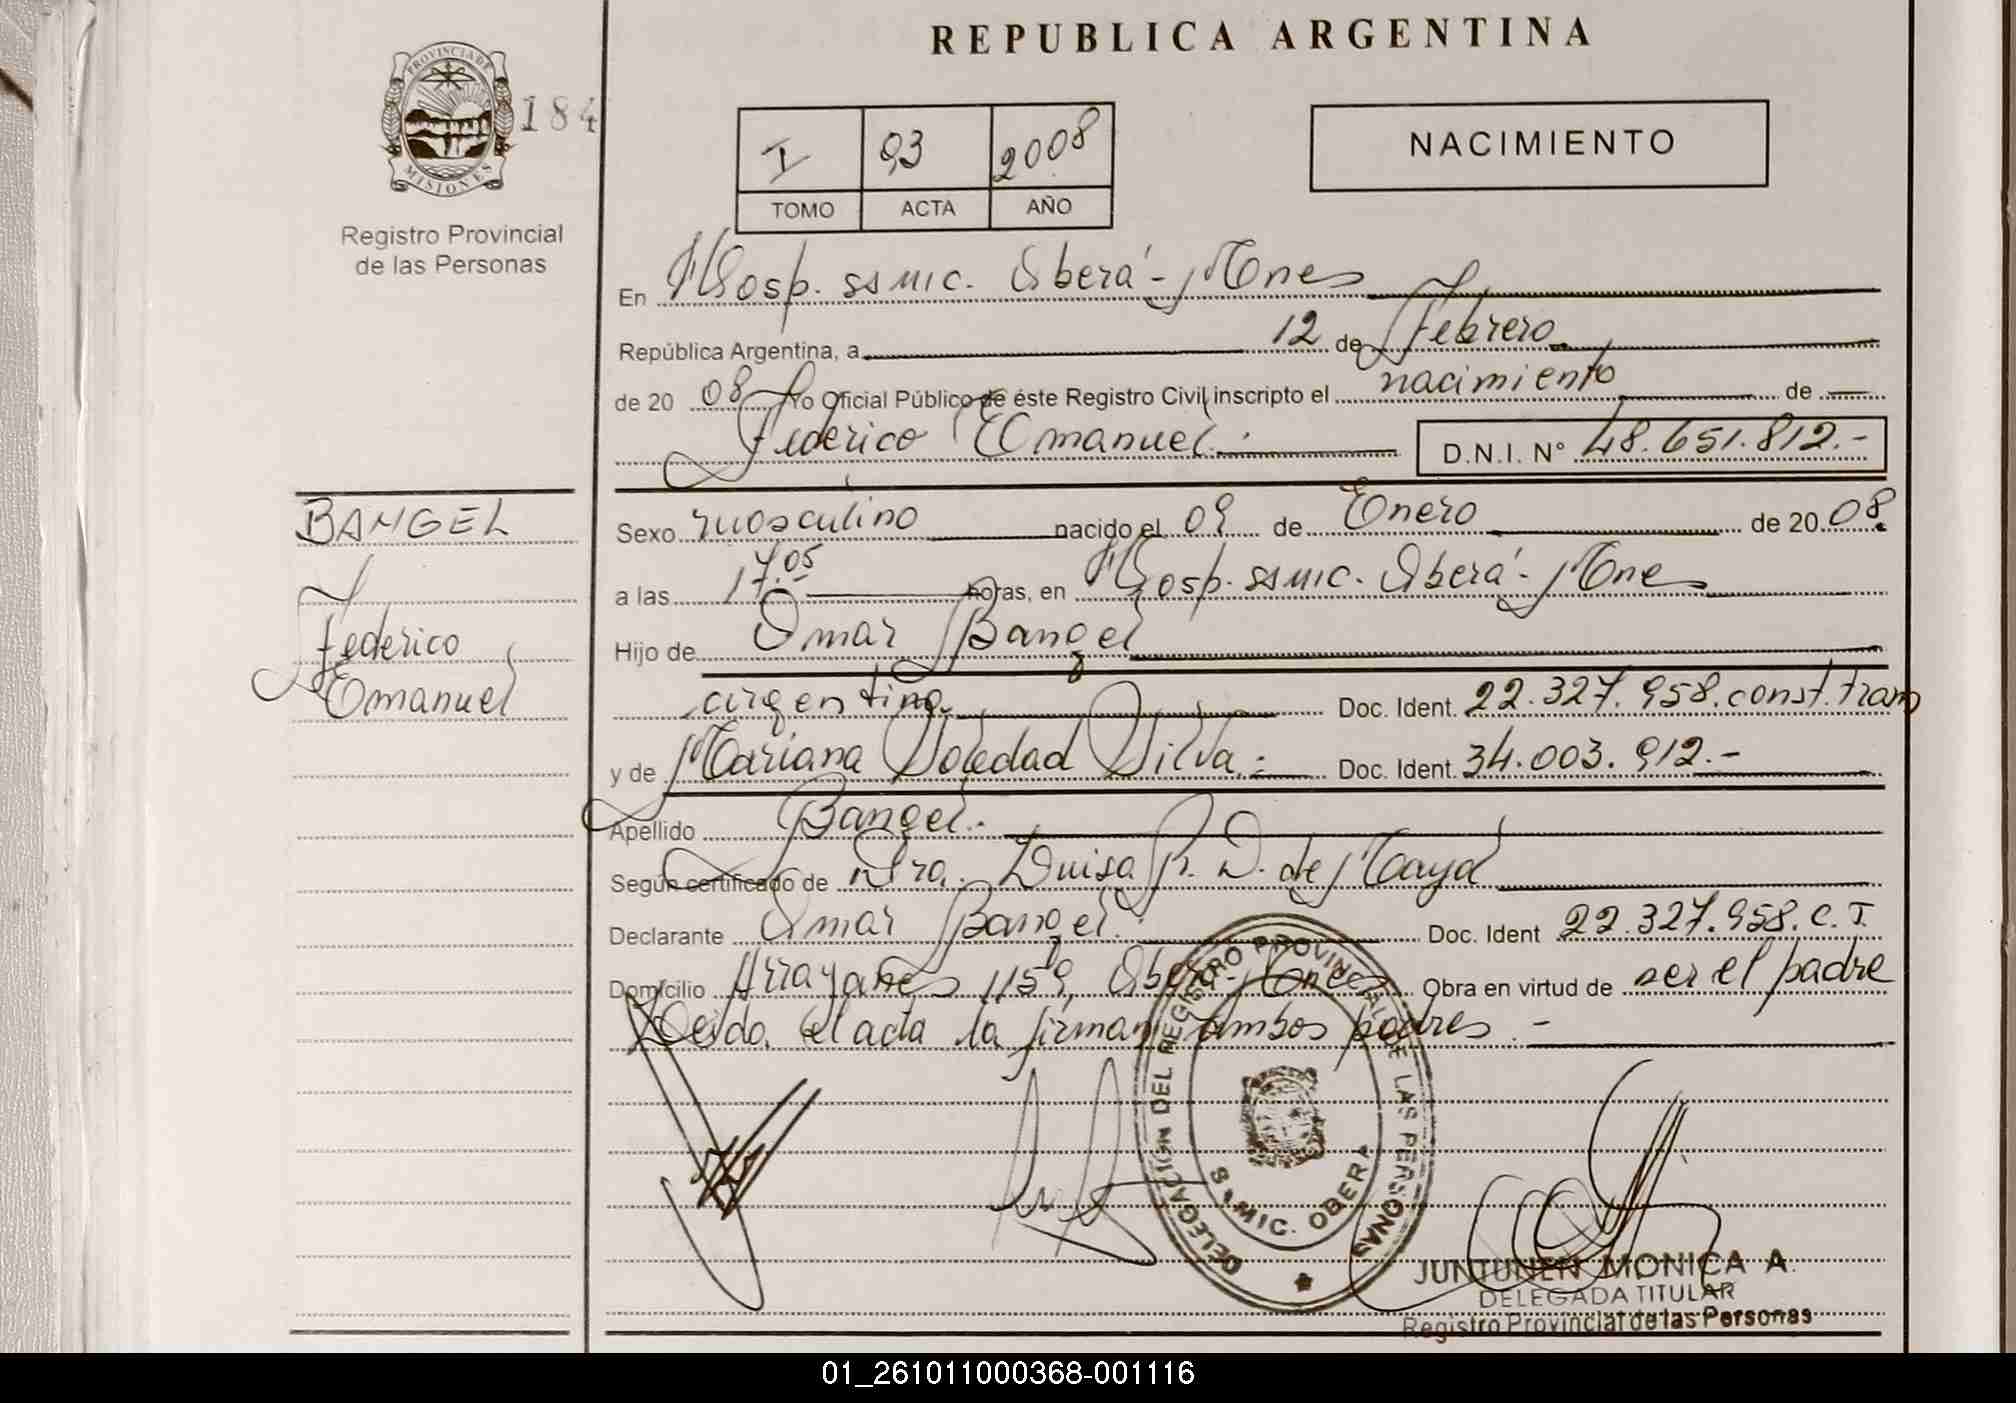 REPUBLICA ARGENTINA
PROVINCIA DE
MISIONES
184
Registro Provincial
de las Personas
I 93 2008
TOMO ACTA AÑO
NACIMIENTO
En Hosp. SSMIC. Oberá - Mnes
República Argentina, a 12 de Febrero
de 20 08 Yo Oficial Público de éste Registro Civil inscripto el nacimiento de
Federico Emanuel.- D.N.I. N° 48.651.812.-
BANGEL
Federico
Emanuel
Sexo masculino nacido el 09 de Enero de 20 08.
a las 17.05 horas, en Hosp. SSMIC. Oberá - Mnes
Hijo de Omar Bangel
argentino. Doc. Ident. 22.327.958. const. tram
y de Mariana Soledad Silva.- Doc. Ident. 34.003.912.-
Apellido Bangel.-
Según certificado de Dra. Luisa P. D. de Maya
Declarante Omar Bangel. Doc. Ident 22.327.958. C. T.
Domicilio Arrayanes 1159, Oberá - Mnes Obra en virtud de ser el padre
Leída el acta la firman ambos padres.-
DELEGACIÓN DEL REGISTRO PROVINCIAL DE LAS PERSONAS
S.MIC. OBERA
JUNTUNEN MONICA A.
DELEGADA TITULAR
Registro Provincial de las Personas
01_261011000368-001116